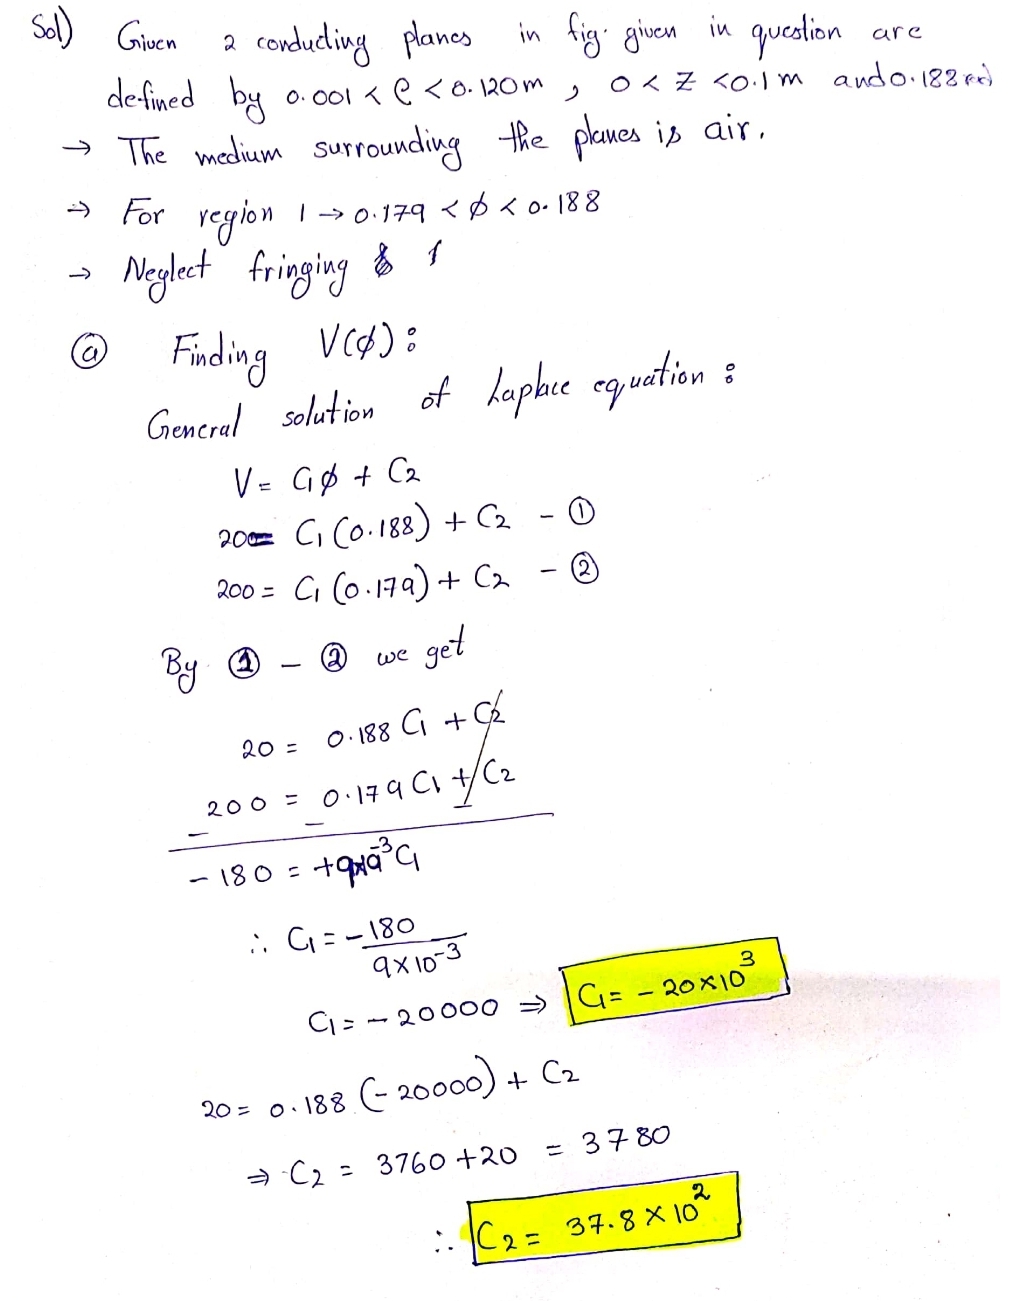 Sol) Given 2 conducting planes in fig. given in question are
defined by 0.001 < ρ < 0.120m , 0 < Z < 0.1m and 0.188 rad
→ The medium surrounding the planes is air.
→ For region 1 → 0.179 < ϕ < 0.188
→ Neglect fringing &
ⓐ Finding V(ϕ) :
General solution of Laplace equation :
V = C₁ϕ + C₂
20 = C₁ (0.188) + C₂ - ①
200 = C₁ (0.179) + C₂ - ②
By ① - ② we get
20 = 0.188 C₁ + C₂
200 = 0.179 C₁ + C₂
- 180 = +9x10⁻³ C₁
∴ C₁ = -180 / 9x10⁻³
C₁ = - 20000 ⇒ C₁ = - 20x10³
20 = 0.188 (-20000) + C₂
⇒ C₂ = 3760 + 20 = 3780
∴ C₂ = 37.8 x 10²